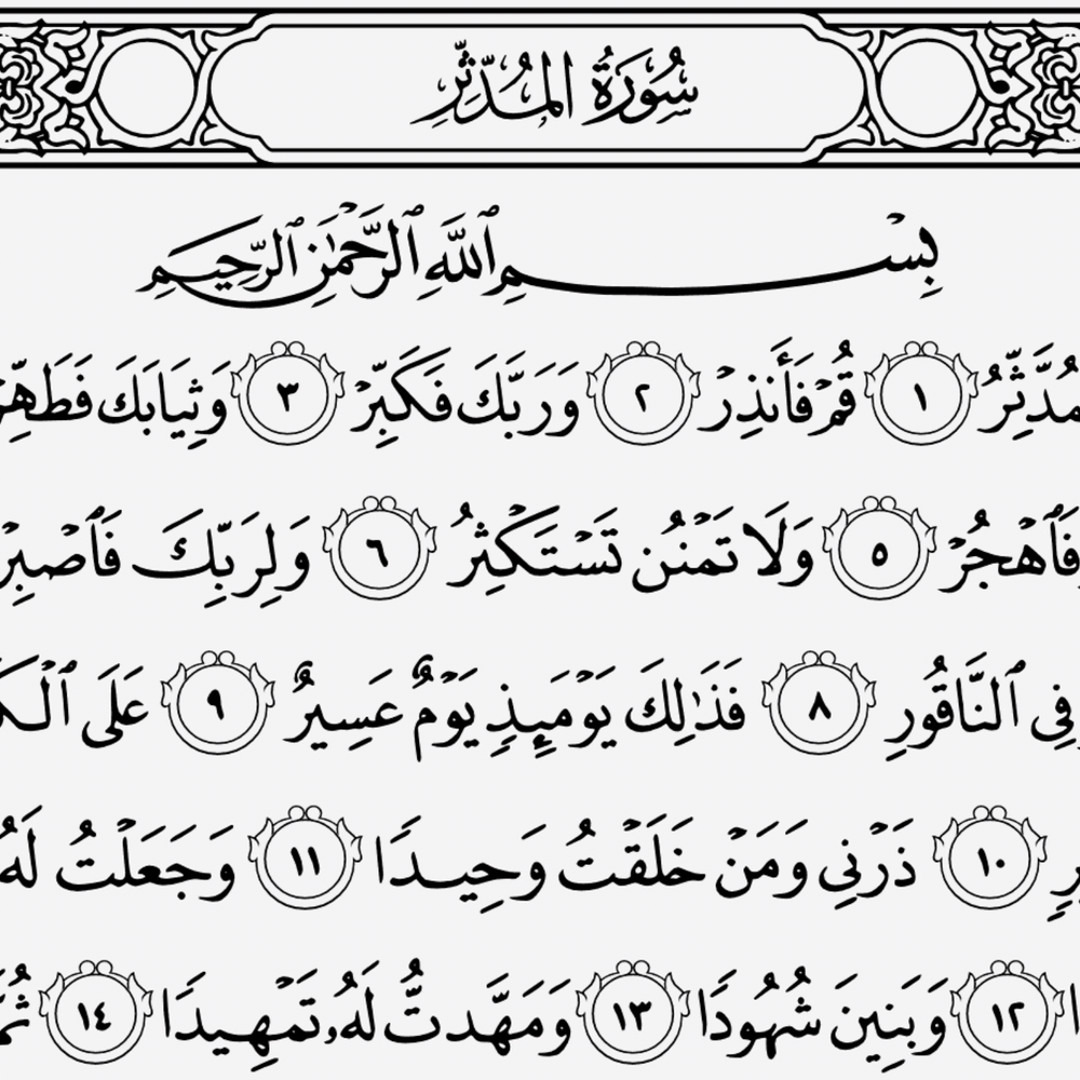 سُورَةُ المُدَّثِّرِ
بِسْمِ ٱللَّهِ ٱلرَّحْمَٰنِ ٱلرَّحِيمِ
مُدَّثِّرُ ١ قُمْ فَأَنذِرْ ٢ وَرَبَّكَ فَكَبِّرْ ٣ وَثِيَابَكَ فَطَهِّرْ
فَٱهْجُرْ ٥ وَلَا تَمْنُن تَسْتَكْثِرُ ٦ وَلِرَبِّكَ فَٱصْبِرْ
فِى ٱلنَّاقُورِ ٨ فَذَٰلِكَ يَوْمَئِذٍ يَوْمٌ عَسِيرٌ ٩ عَلَى ٱلْكَ
يرٍ ١٠ ذَرْنِى وَمَنْ خَلَقْتُ وَحِيدًا ١١ وَجَعَلْتُ لَهُ
ا ١٢ وَبَنِينَ شُهُودًا ١٣ وَمَهَّدتُّ لَهُۥ تَمْهِيدًا ١٤ ثُمَّ